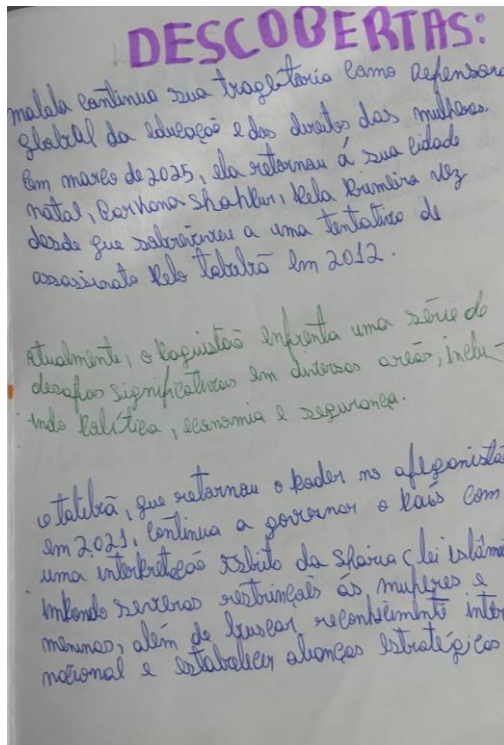 DESCOBERTAS:
malala continua sua tragetoria como Defensora
global da educação e dos direitos das mulheres.
Em março de 2025, ela retornou á sua cidade
natal, Barkana Shahkur, pela primeira vez
desde que sobreviveu a uma tentativa de
assassinato pelo talebã em 2012.
Atualmente, o Paquistão enfrenta uma série de
desafios significativos em diversas areas, inclu-
indo Política, economia e segurança.
o talibã, que retornou o poder no afeganistã
em 2021, continua a governar o país com
uma interpretação da sharia (lei islâmi
impondo severas ás mulheres e
meninas, além de buscar inter
nacional e estabelecer alianças estratégicas